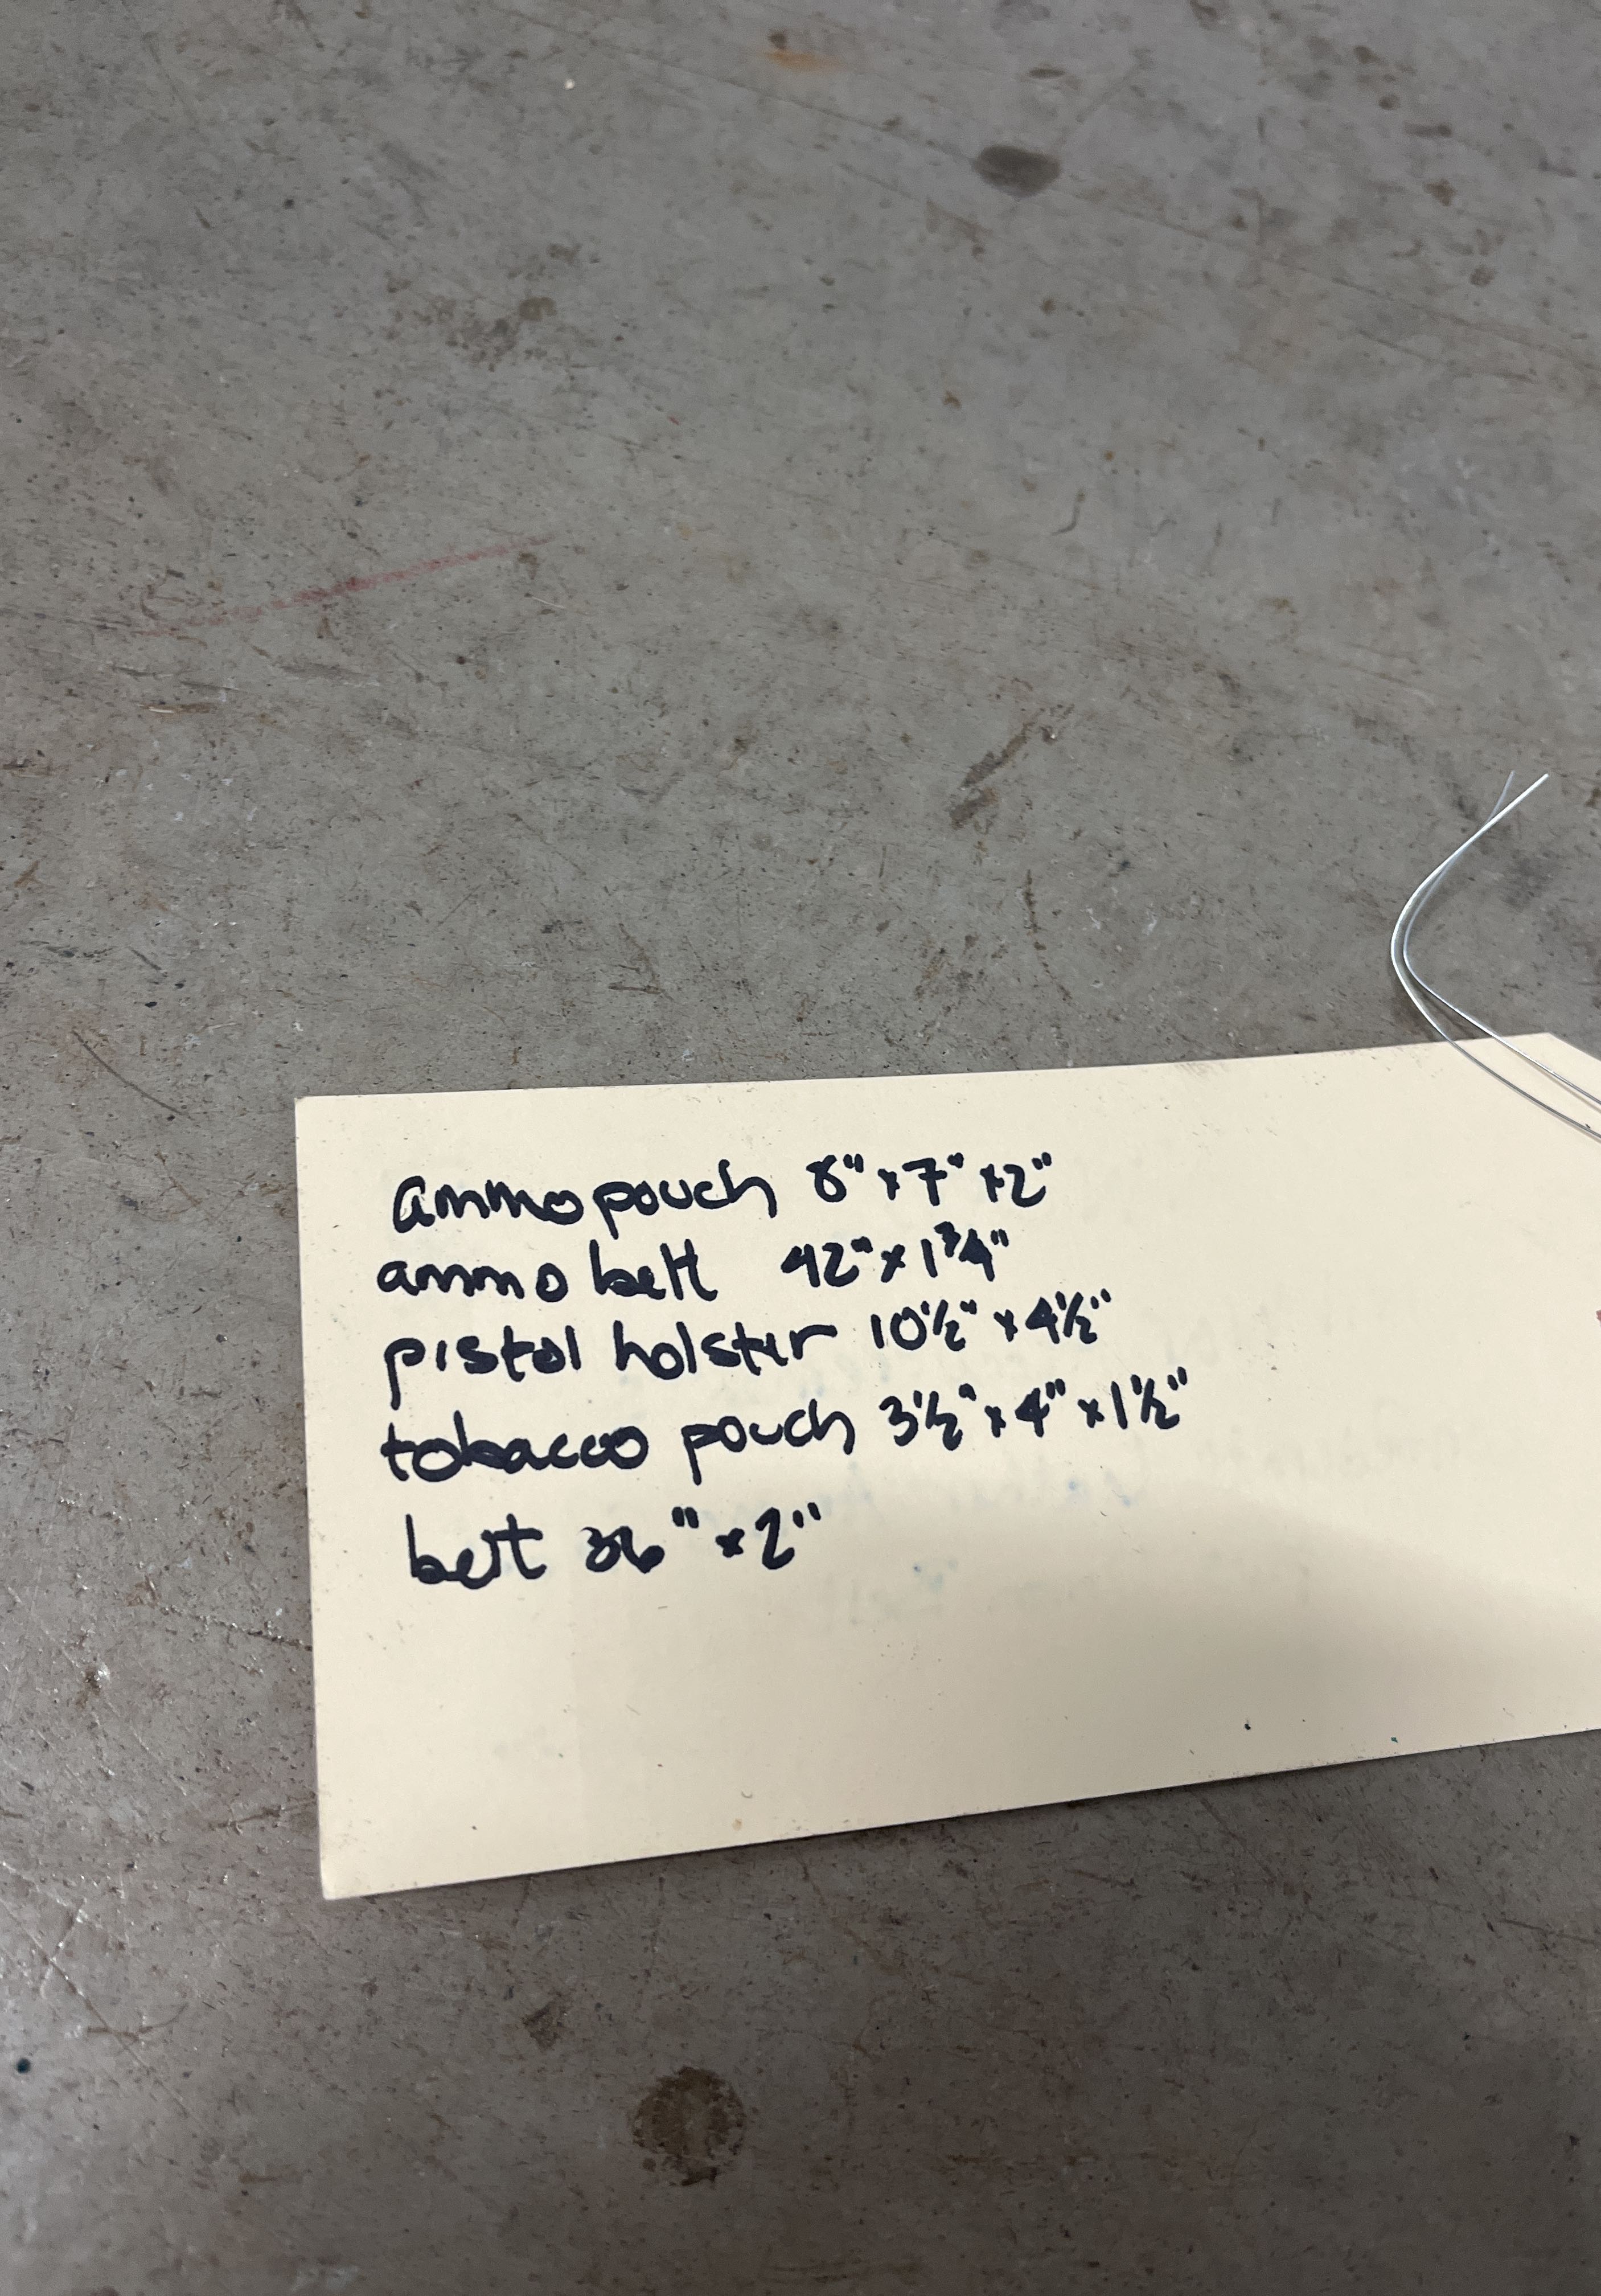 ammo pouch 8" x 7" x 2"
ammo belt 42" x 1 3/4"
pistol holster 10 1/2" x 4 1/2"
tobacco pouch 3 1/2" x 4" x 1 1/2"
belt 36" x 2"